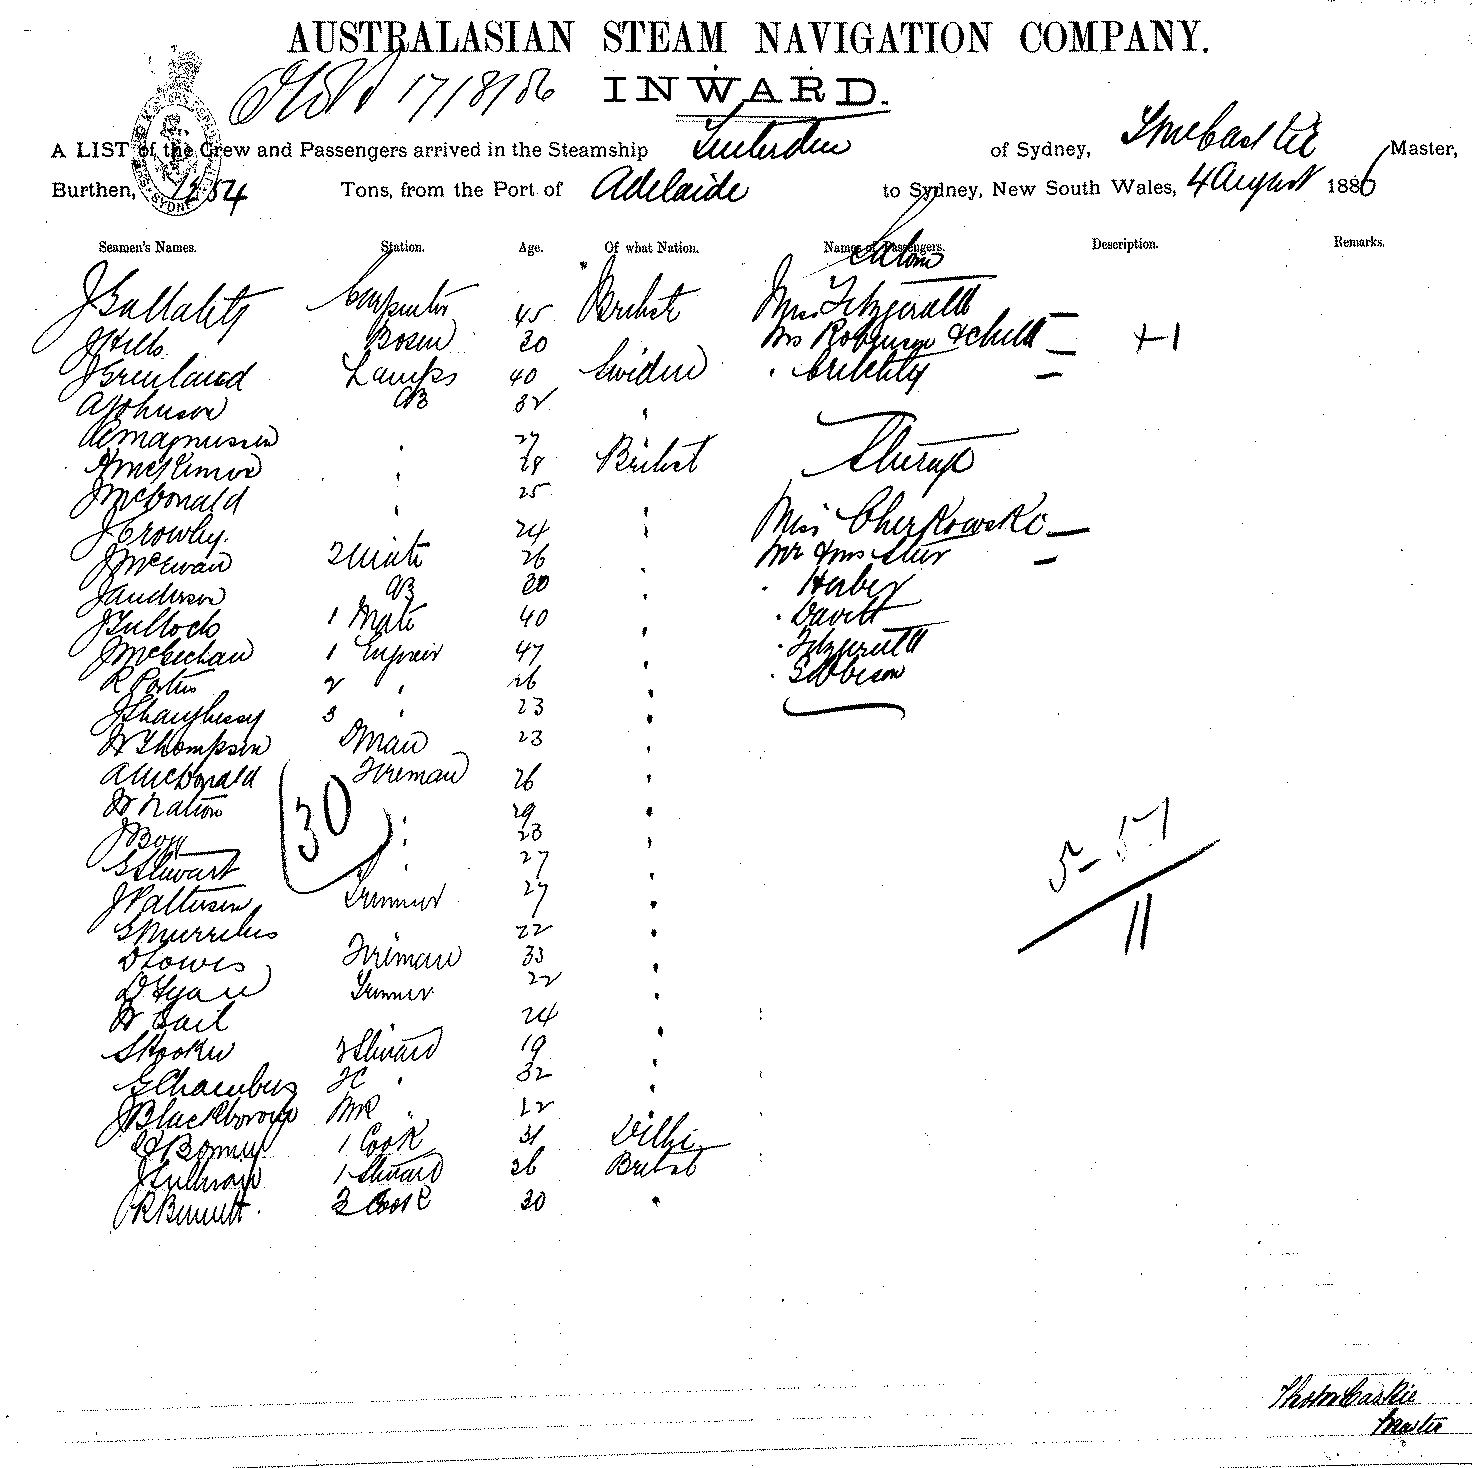 AUSTRALASIAN STEAM NAVIGATION COMPANY.
17/8/86 INWARD.
A LIST of the Crew and Passengers arrived in the Steamship Tenterden of Sydney, Master,
Burthen, 1254 Tons, from the Port of Adelaide to Sydney, New South Wales, 4 August 1886
Seamen's Names. Station. Age. Of what Nation. Names of Passengers. Description. Remarks.
Saloon
Carpenter 45 British Miss Fitzgerald
J Hills Bosen 30 Mrs Robinson & child +1
J Greenland Lamps 40 Sweden " Critchley
A Johnson AB 32 "
A Magnussen " 27
" 28 British Steerage
J McDonald " 25 "
J Crowley " 24 " Miss Cherkowski
J McEwan 2 Mate 26 " Mr & Mrs
J Anderson AB 30 "
J Bullock 1 Mate 40 " " Davitt
J McGechan 1 Engineer 47 " " Fitzgerald
R Porter 2 " 26 "
J Shaughnessy 3 " 23 "
W Thompson Dman 23 "
A McDonald Fireman 26 "
W Nation " 29 "
30
J Boyy " 23 "
G Stewart " 27 "
J Patterson Trimmer 27 "
5-57
11
22 "
D Lowes Fireman 33 "
D Lyall Trimmer 22 "
W Gail 24 "
S Hooker 2 Steward 19 "
G Chambers FC " 32 "
J Blackborow MR " 22 "
Bonny 1 Cook 31
J Sullivan 1 Steward 26 British
R Bennett 2 Cook 30 "
Master